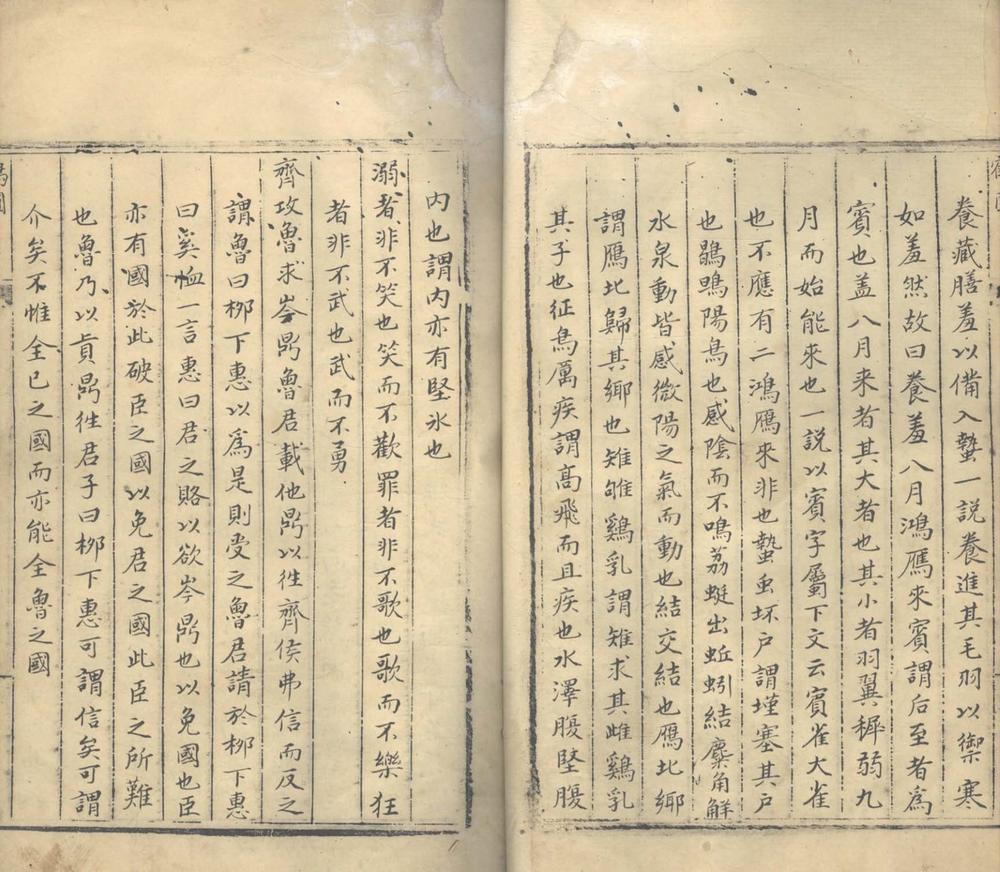 養藏膳羞以備入蟄一説養進其毛羽以禦寒
如羞然故曰養羞八月鴻鴈來賓謂后至者為
賓也盖八月来者其大者也其小者羽翼穉弱九
月而始能來也一説以賓字屬下文云賓雀大雀
也不應有二鴻鴈来非也蟄虫坏户謂墐塞其戸
也鶡鴠陽鳥也感陰而不鳴荔挺出蚯蚓結麋角解
水泉動皆感微陽之氣而動也結交結也鴈北鄉
謂鴈北歸其鄉也雉雊鷄乳謂雉求其雌鷄乳
其子也征鳥厲疾謂髙飛而且疾也水澤腹堅腹
内也謂内亦有堅氷也
溺者非不笑也笑而不歡罪者非不歌也歌而不樂狂
者非不武也武而不勇
齊攻魯求岑鼎魯君載他鼎以徃齊侯弗信而反之
謂魯曰栁下惠以為是則受之魯君請於栁下惠
曰奚恤一言惠曰君之賂以欲岑鼎也以免國也臣
亦有國於此破臣之國以免君之國此臣之所難
也魯乃以貞鼎徃君子曰栁下惠可謂信矣可謂
介矣不惟全已之國而亦能全魯之國